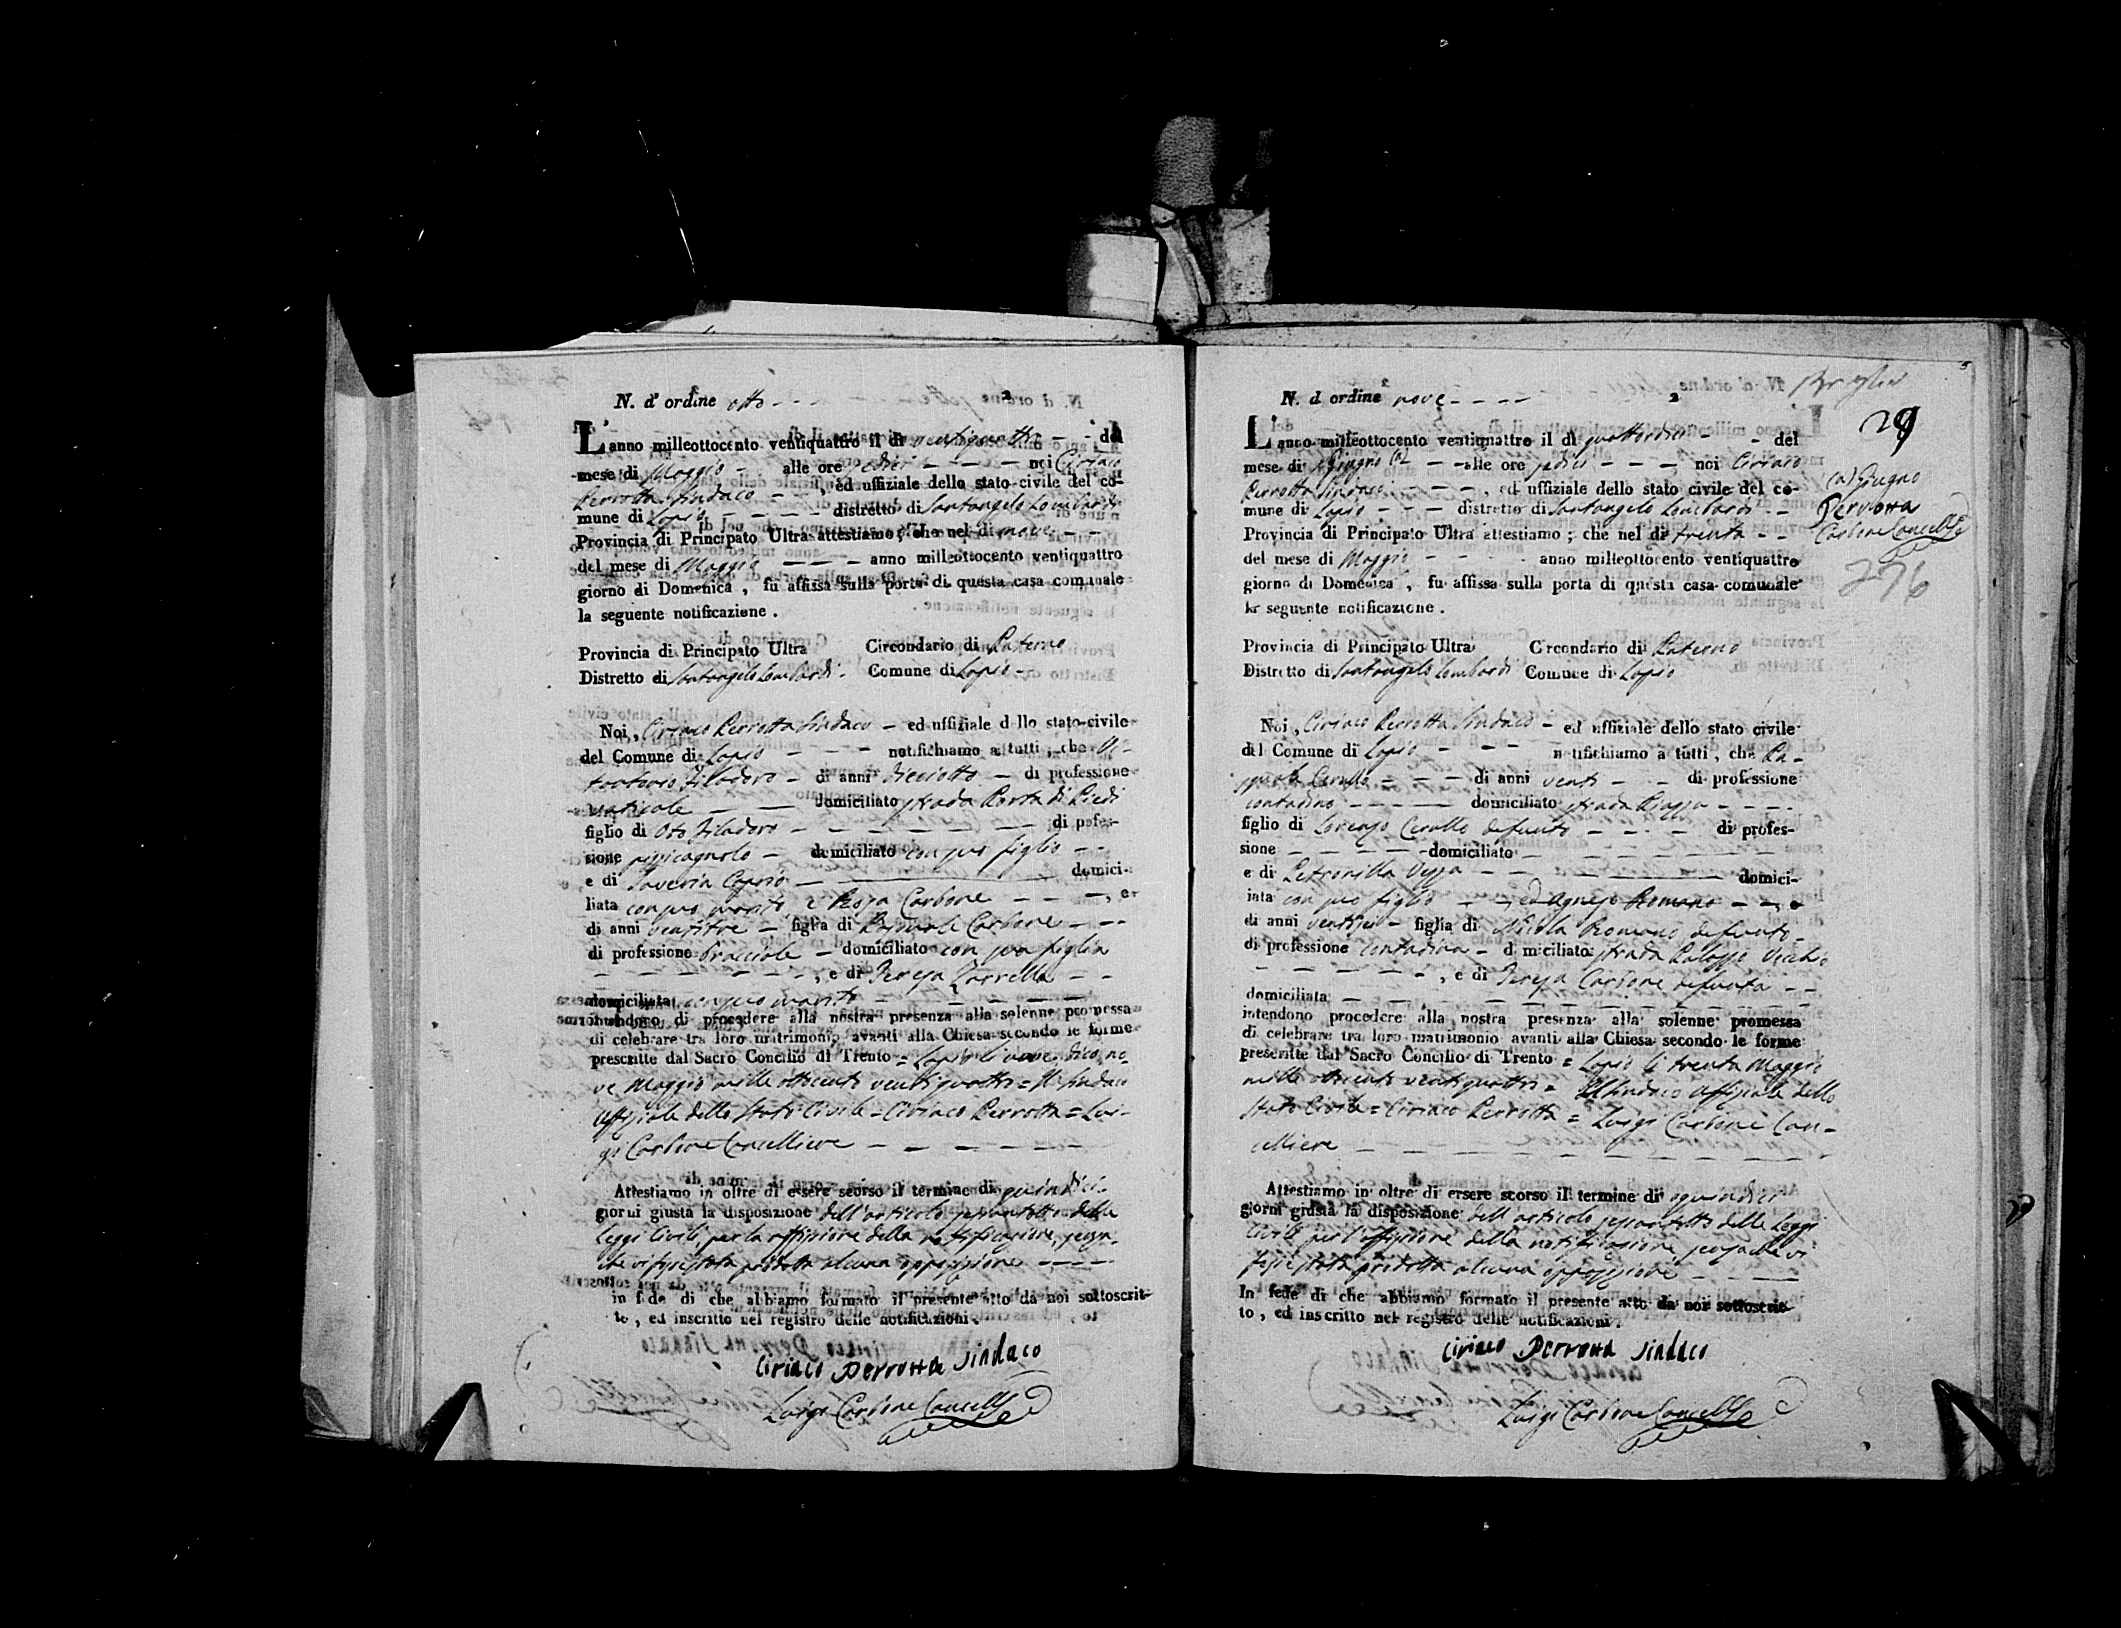 N. d'ordine otto
L'anno milleottocento ventiquattro il dì ventiquattro del
mese di Maggio alle ore sedici noi Ciriaco
Perrotta Sindaco, ed uffiziale dello stato civile del co-
mune di Lapio distretto di Santangelo Lombardi
Provincia di Principato Ultra attestiamo, che nel dì nove
del mese di Maggio anno milleottocento ventiquattro
giorno di Domenica, fu affissa sulla porta di questa casa comunale
la seguente notificazione.
Provincia di Principato Ultra Circondario di Paterno
Distretto di Santangelo Lombardi. Comune di Lapio
Noi, Ciriaco Perrotta Sindaco ed uffiziale dello stato civile
del Comune di Lapio notifichiamo a tutti, che
Filadoro di anni dieciotto di professione
vaticale domiciliato strada Porta di Piedi
figlio di Oto Filadoro di pofes-
sione pizzicagnolo domiciliato con suo figlio
e di Saveria Caprio domici-
liata con suo marito, e Rosa Carbone, e
di anni ventitre figlia di Pasquale Carbone
di professione bracciale domiciliato con sua figlia
, e di Teresa Zarrella
domiciliata con suo marito
intendono di procedere alla nostra presenza alla solenne promessa
di celebrare tra loro matrimonio avanti alla Chiesa secondo le forme
prescritte dal Sacro Concilio di Trento = Lapio li nove dico no-
ve Maggio mille ottocento ventiquattro = Il Sindaco
Uffiziale dello Stato Civile = Ciriaco Perrotta = Lui-
gi Carbone Cancelliere
Attestiamo in oltre di essere scorso il termine di quindici
giorni giusta la disposizione dell'articolo sessantotto delle
Leggi Civili, per la affissione della notificazione, senza
che vi fosse stata prodotta alcuna opposizione
in fede di che abbiamo formato il presente atto da noi sottoscrit-
to, ed inscritto nel registro delle notificazioni.
Ciriaco Perrotta Sindaco
Luigi Carbone Cancell.e
N. d ordine nove
29
L'anno milleottocento ventiquattro il dì quattordici del
mese di Giugno (a) alle ore sedici noi Ciriaco
Perrotta Sindaco, ed uffiziale dello stato civile del co-
mune di Lapio distretto di Santangelo Lombardi
Provincia di Principato Ultra attestiamo, che nel dì trenta
del mese di Maggio anno milleottocento ventiquattro
giorno di Domenica, fu affissa sulla porta di questa casa comunale
la seguente notificazione.
(a) Giugno
Perrotta
Carbone Cancell.e
276
Provincia di Principato Ultra Circondario di Paterno
Distretto di Santangelo Lombardi Comune di Lapio
Noi, Ciriaco Perrotta Sindaco ed uffiziale dello stato civile
del Comune di Lapio notifichiamo a tutti, che Pa-
squale Cerullo di anni venti di professione
contadino domiciliato strada Piazza
figlio di Lorenzo Cerullo defunto di profes-
sione domiciliato
e di Petronilla domici-
iata con suo figlio ed Agnese Romano, e
di anni ventisei figlia di Nicola Romano defunto
di professione contadina domiciliato strada Palazzo Vecchio
, e di Teresa Carbone defunta
domiciliata
intendono procedere alla nostra presenza alla solenne promessa
di celebrare tra loro matrimonio avanti alla Chiesa secondo le forme
prescritte dal Sacro Concilio di Trento = Lapio li trenta Maggio
mille ottocento ventiquattro = Il Sindaco Uffiziale dello
Stato Civile = Ciriaco Perrotta = Luigi Carbone Can-
celliere
Attestiamo in oltre di essere scorso il termine di quindici
giorni giusta la disposizione dell'articolo sessantotto delle Leggi
Civili per l'affissione della notificazione senza che vi
fosse stata prodotta alcuna opposizione
In fede di che abbiamo formato il presente atto da noi sottoscrit-
to, ed inscritto nel registro delle notificazioni.
Ciriaco Perrotta Sindaco
Luigi Carbone Cancell.e